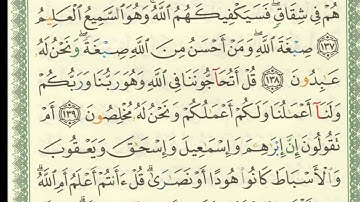 هُمْ فِى شِقَاقٍ ۖ فَسَيَكْفِيكَهُمُ ٱللَّهُ ۚ وَهُوَ ٱلسَّمِيعُ ٱلْعَلِيمُ
﴿١٣٧﴾ صِبْغَةَ ٱللَّهِ ۖ وَمَنْ أَحْسَنُ مِنَ ٱللَّهِ صِبْغَةً ۖ وَنَحْنُ لَهُۥ
عَـٰبِدُونَ ﴿١٣٨﴾ قُلْ أَتُحَآجُّونَنَا فِى ٱللَّهِ وَهُوَ رَبُّنَا وَرَبُّكُمْ
وَلَنَآ أَعْمَـٰلُنَا وَلَكُمْ أَعْمَـٰلُكُمْ وَنَحْنُ لَهُۥ مُخْلِصُونَ ﴿١٣٩﴾ أَمْ
تَقُولُونَ إِنَّ إِبْرَٰهِـۧمَ وَإِسْمَـٰعِيلَ وَإِسْحَـٰقَ وَيَعْقُوبَ
وَٱلْأَسْبَاطَ كَانُوا۟ هُودًا أَوْ نَصَـٰرَىٰ ۗ قُلْ ءَأَنتُمْ أَعْلَمُ أَمِ ٱللَّهُ ۗ